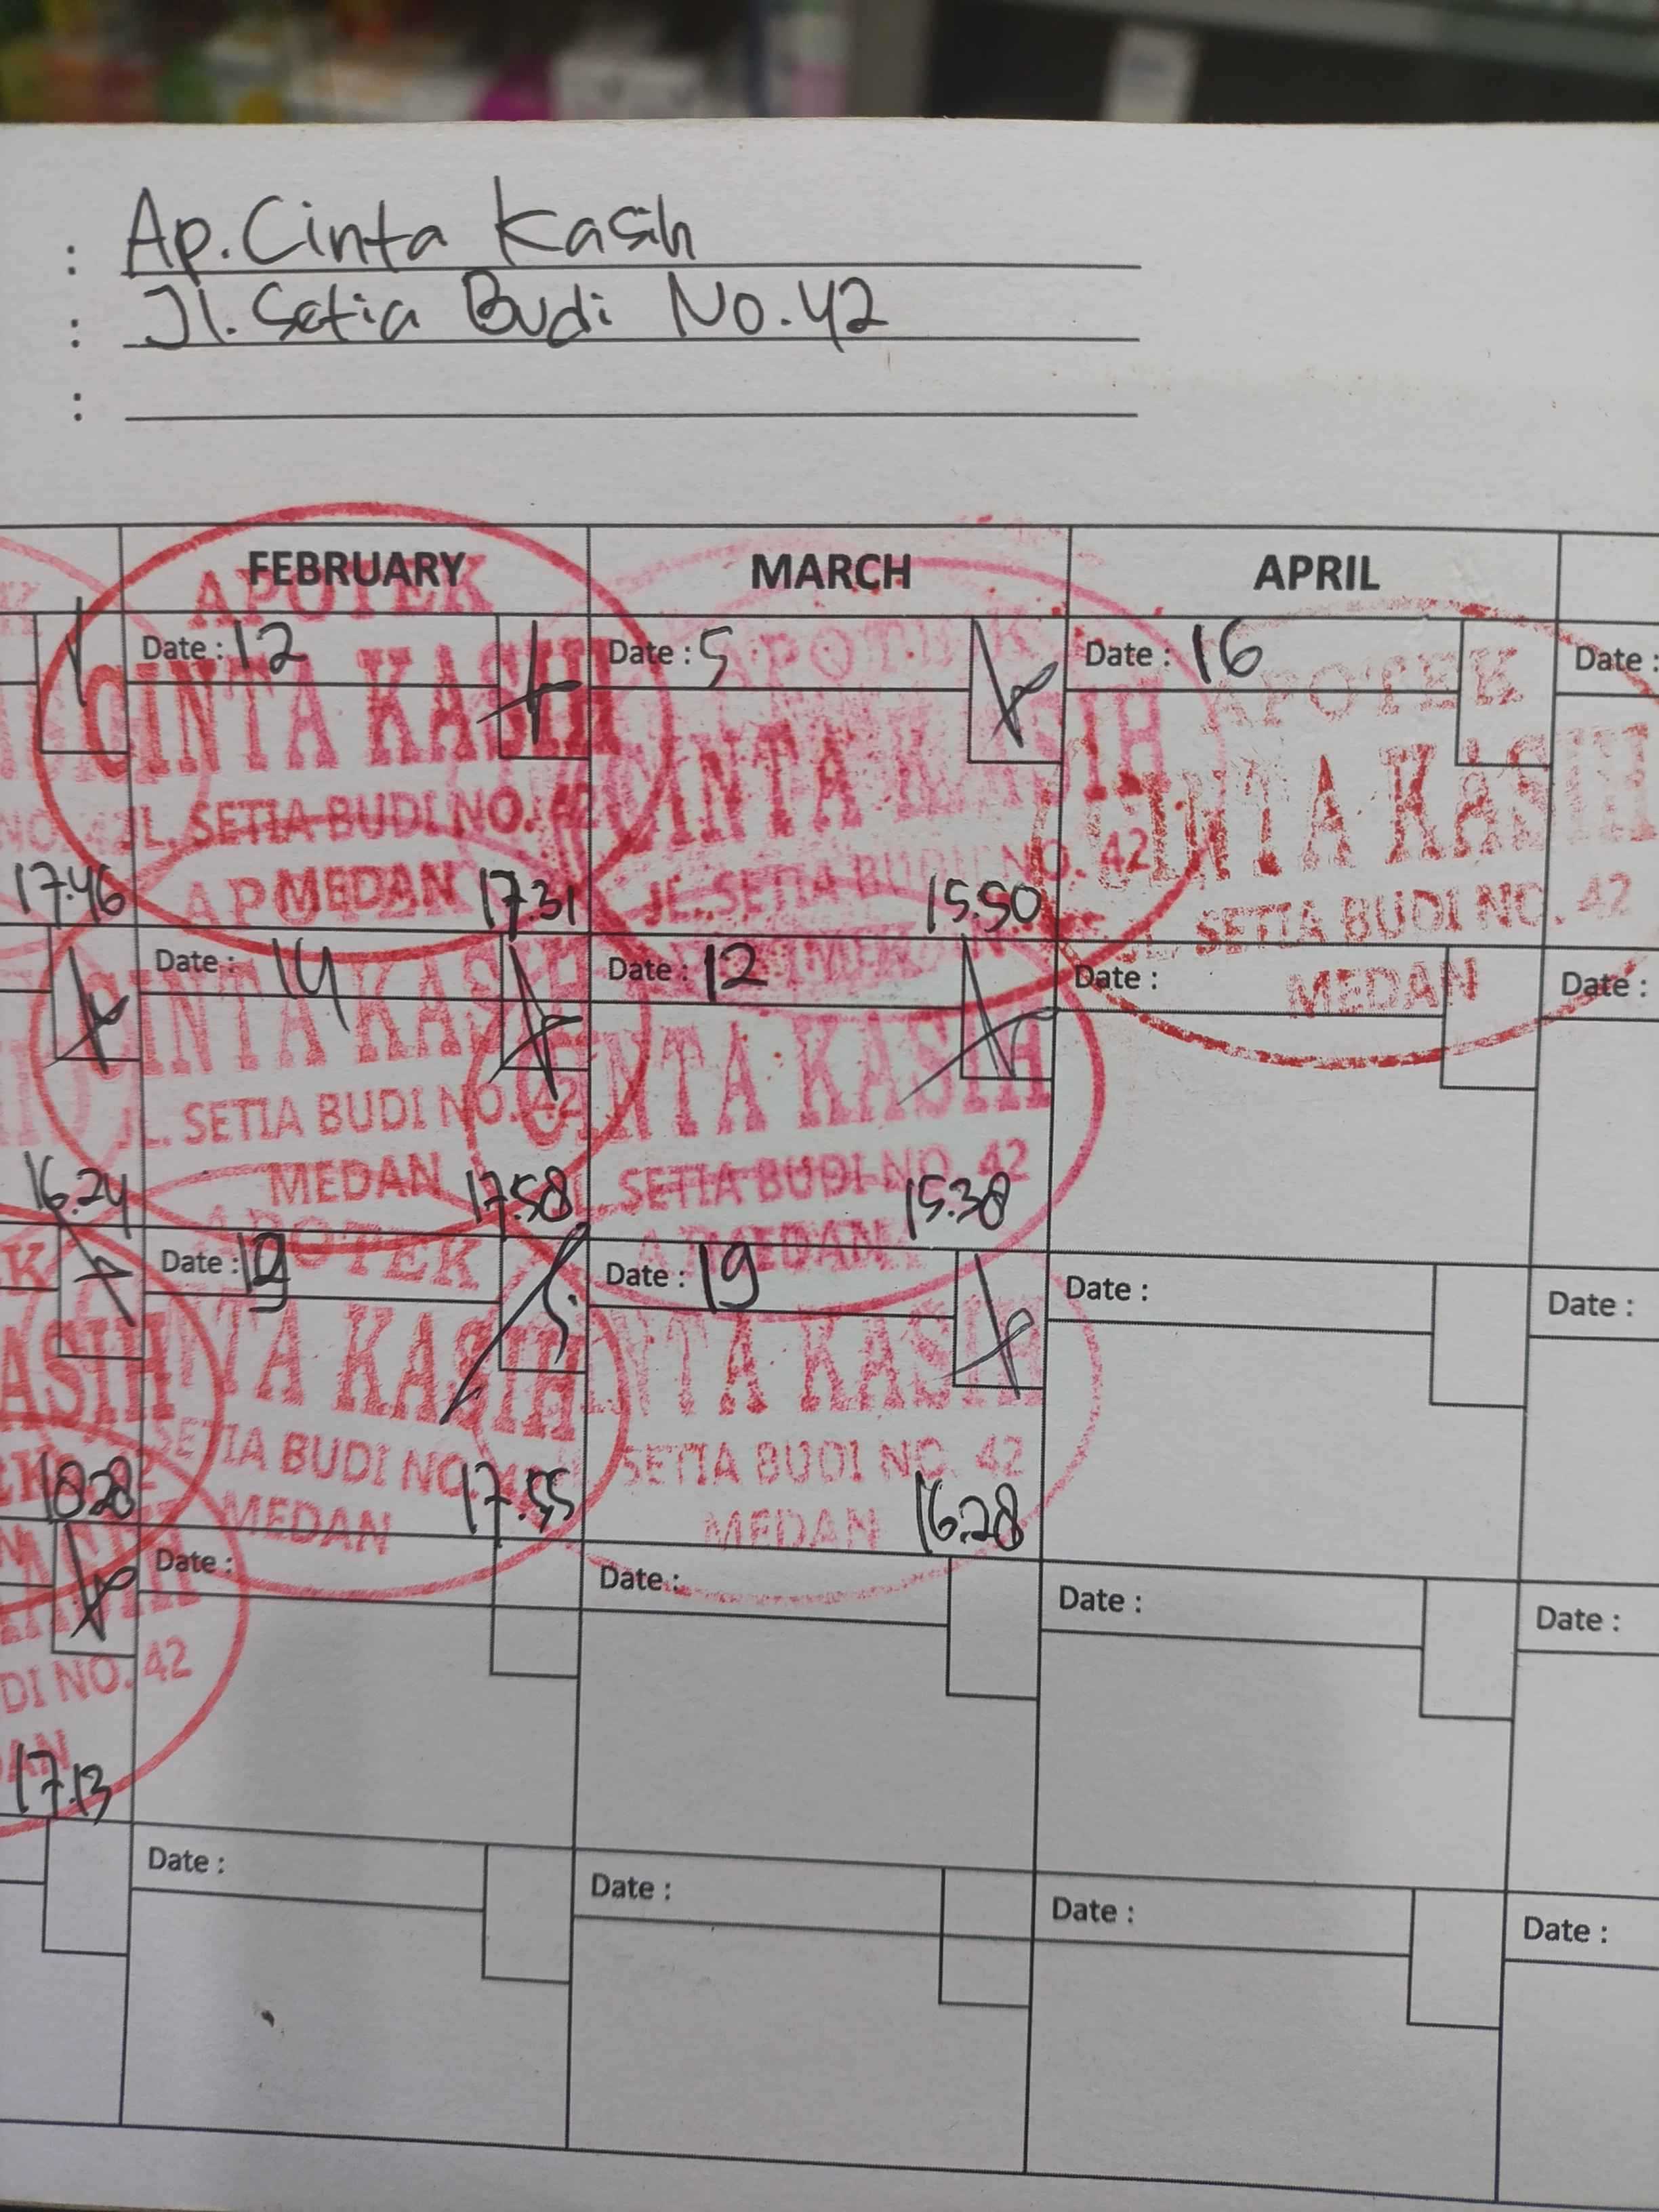 : Ap. Cinta Kasih
: Jl. Setia Budi No. 42
:
FEBRUARY MARCH APRIL
Date : 12 Date : 5 Date : 16 Date :
APOTEK APOTEK APOTEK
CINTA KASIH CINTA KASIH CINTA KASIH
NO. 42 JL. SETIA BUDI NO. 42 JL. SETIA BUDI NO. 42 JL. SETIA BUDI NO. 42
MEDAN MEDAN
17.46 17.31 15.50
Date : 14 Date : 12 Date : Date :
CINTA KASIH CINTA KASIH
JL. SETIA BUDI NO. 42 JL. SETIA BUDI NO. 42
MEDAN MEDAN
16.24 17.58 15.38
Date : Date : 19 Date : Date :
K APOTEK
KASIH CINTA KASIH CINTA KASIH
SETIA BUDI NO. SETIA BUDI NO. 42
MEDAN MEDAN
17.55 16.28
Date : Date : Date : Date :
DI NO. 42
17.13
Date : Date : Date : Date :